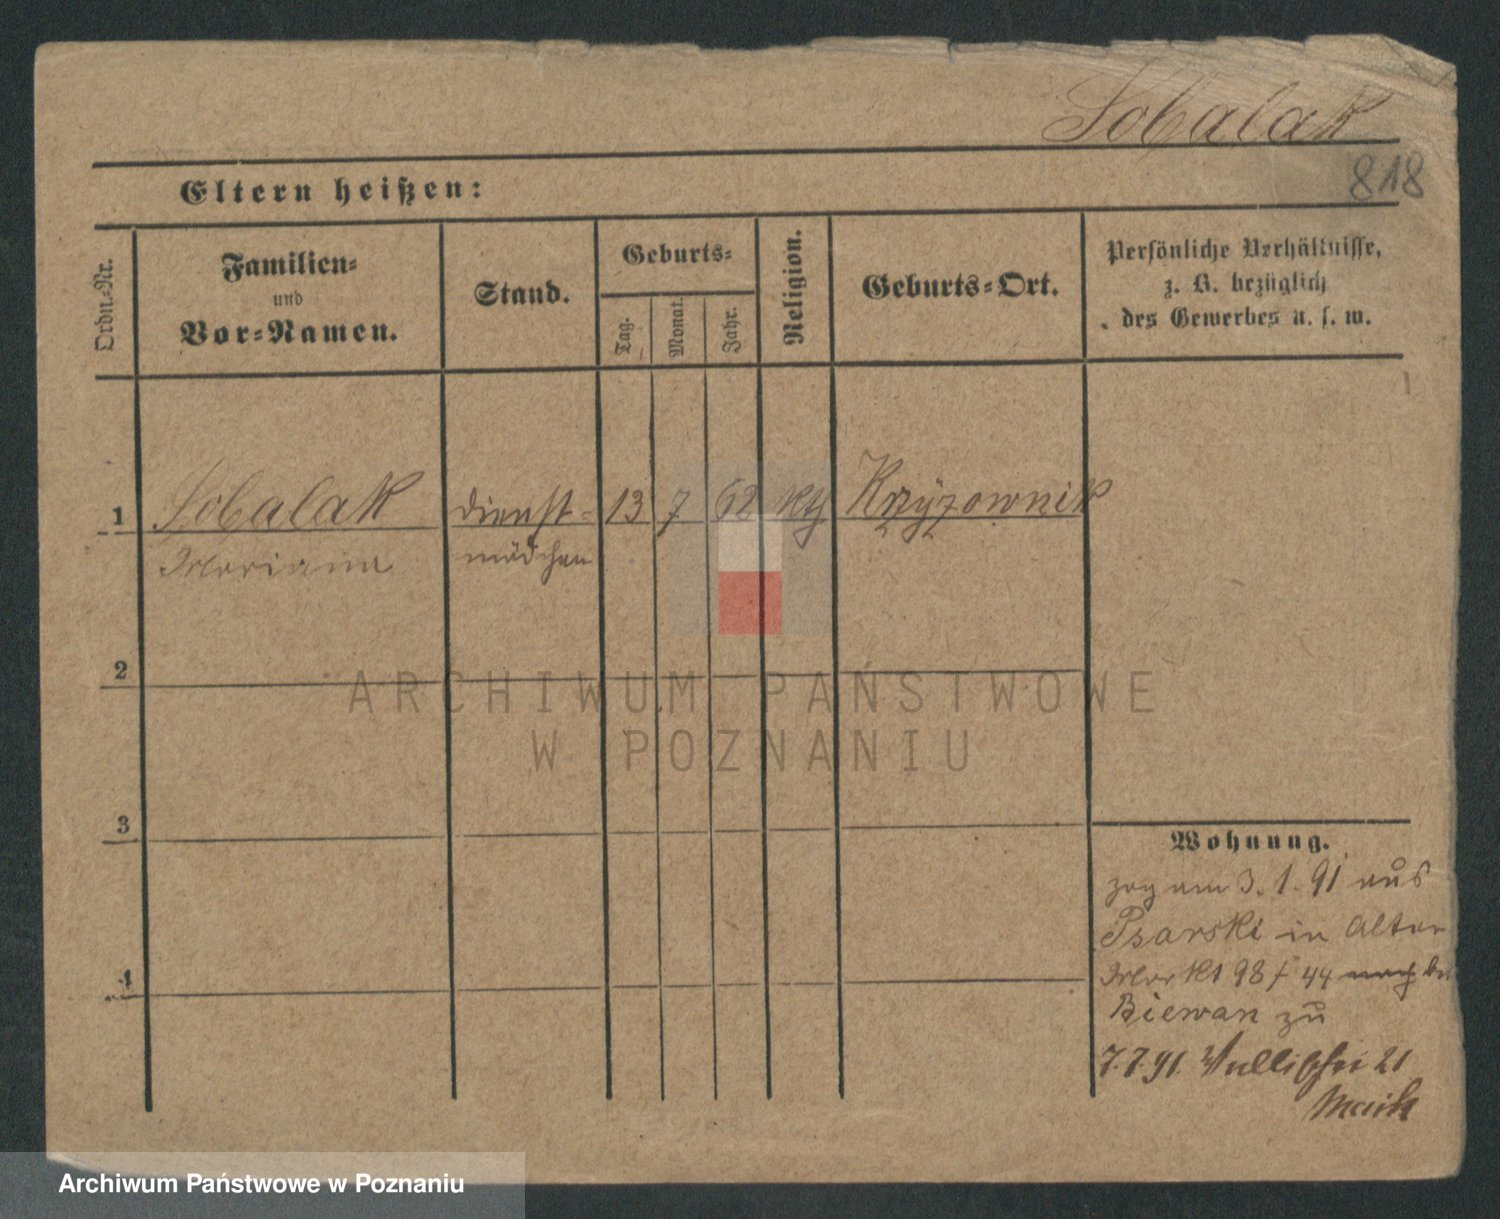 Sobalak
818
Eltern heißen:
Ordn.-Nr.
Familien-
und
Vor-Namen.
Stand.
Geburts-
Tag.
Monat.
Jahr.
Religion.
Geburts-Ort.
Persönliche Verhältnisse,
z. B. bezüglich
des Gewerbes u. s. w.
1 Sobalak dienst- 13 7 62 kth Krzyzownik
Mariana mädchen
2
3
4
Wohnung.
zog am 3. 1. 91 aus
Psarski in Alter
Markt 98/44
Biewan zu
7.7.91. 21
ARCHIWUM PAŃSTWOWE
W POZNANIU
Archiwum Państwowe w Poznaniu